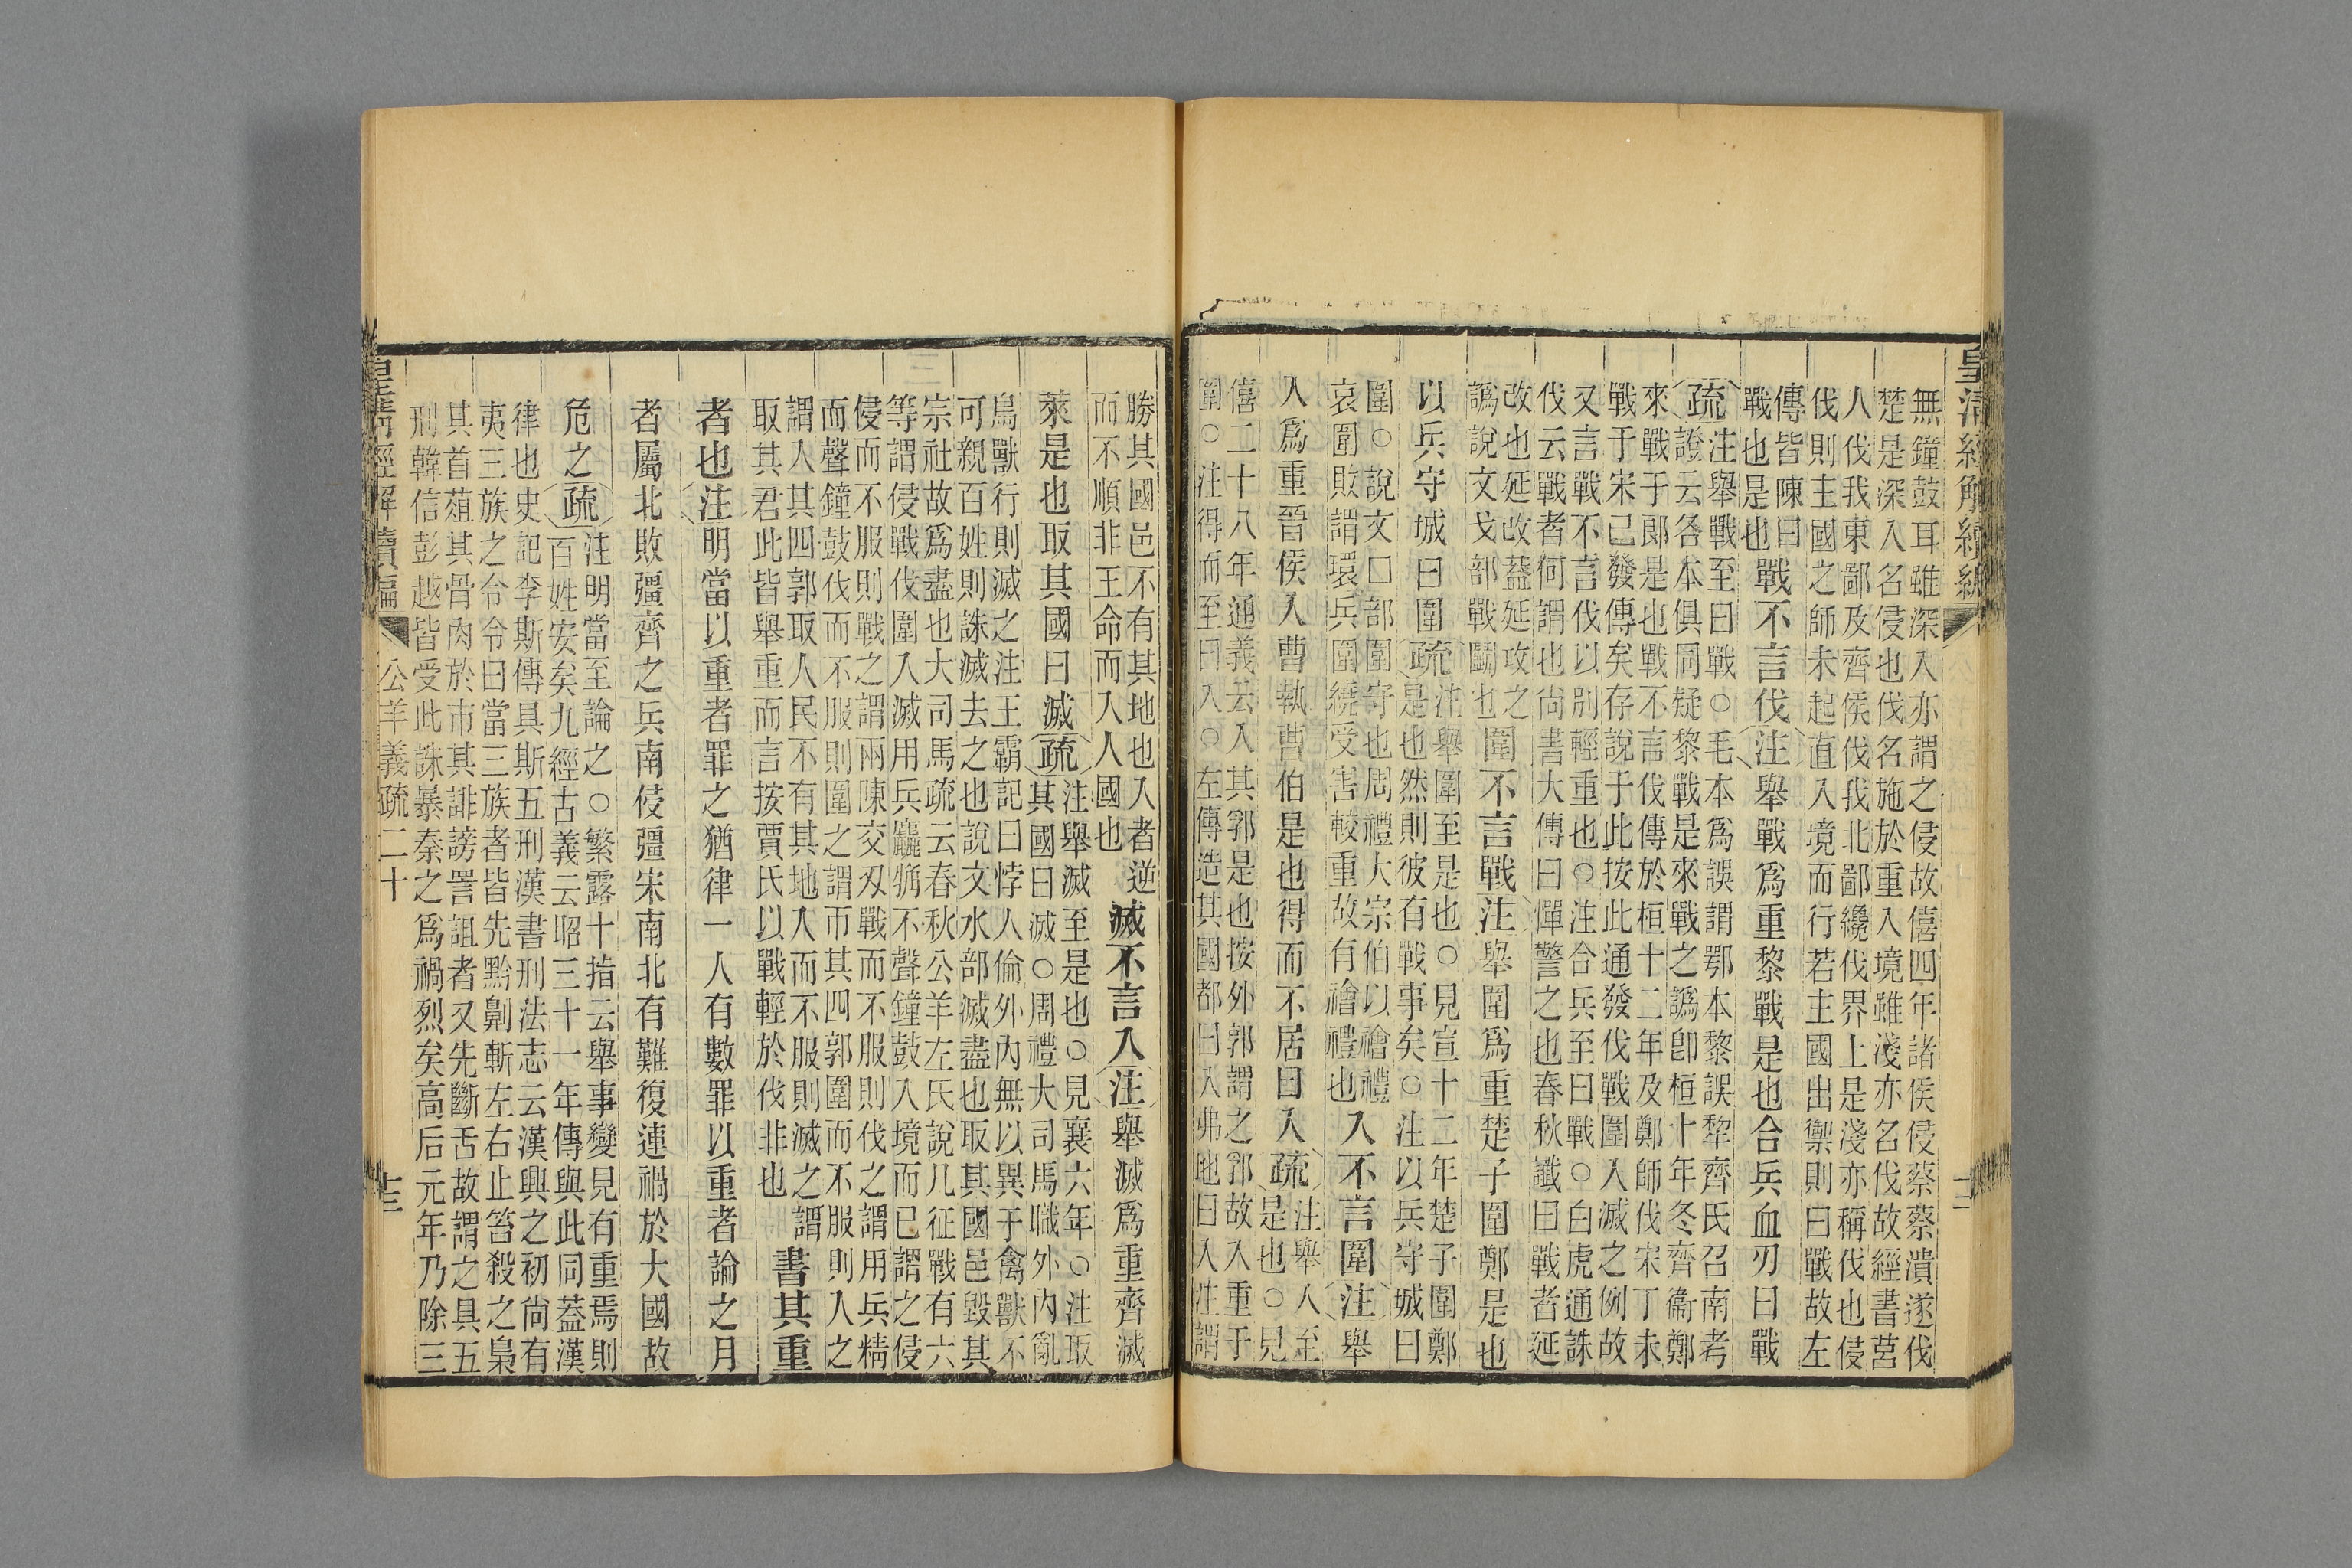 皇清經解續編
無鐘鼓耳雖深入亦謂之侵故僖四年諸侯侵蔡蔡潰遂伐
楚是深入名侵也伐名施於重入境雖淺亦名伐故經書莒
人伐我東鄙及齊侯伐我北鄙纔伐界上是淺亦稱伐也侵
伐則主國之師未起直入境而行若主國出禦則曰戰故左
傳皆陳曰
戰也是也
戰不言伐注舉戰爲重黎戰是也合兵血刃曰戰
疏
注舉戰至曰戰○毛本爲誤謂鄂本黎誤犂齊氏召南考
證云各本俱同疑黎戰是來戰之譌卽桓十年冬齊衞鄭
來戰于郎是也戰不言伐傳於桓十二年及鄭師伐宋丁未
戰于宋已發傳矣存說于此按此通發伐戰圍入滅之例故
又言戰不言伐以別輕重也○注合兵至曰戰○白虎通誅
伐云戰者何謂也尙書大傳曰憚警之也春秋讖曰戰者延
改也延改葢延攻之
譌說文戈部戰鬭也
圍不言戰注舉圍爲重楚子圍鄭是也
以兵守城曰圍疏
注舉圍至是也○見宣十二年楚子圍鄭
是也然則彼有戰事矣○注以兵守城曰
圍○說文囗部圍守也周禮大宗伯以禬禮
哀圍敗謂環兵圍繞受害較重故有禬禮也
入不言圍注舉
入爲重晉侯入曹執曹伯是也得而不居曰入疏
注舉入至
是也○見
僖二十八年通義云入其郛是也按外郭謂之郛故入重于
圍○注得而至曰入○左傳造其國都曰入弗地曰入注謂
十二
勝其國邑不有其地也入者逆
而不順非王命而入人國也
滅不言入注舉滅爲重齊滅
萊是也取其國曰滅疏
注舉滅至是也○見襄六年○注取
其國曰滅○周禮大司馬職外內亂
鳥獸行則滅之注王霸記曰悖人倫外內無以異于禽獸不
可親百姓則誅滅去之也說文水部滅盡也取其國邑毀其
宗社故爲盡也大司馬疏云春秋公羊左氏說凡征戰有六
等謂侵戰伐圍入滅用兵麤觕不聲鐘鼓入境而已謂之侵
侵而不服則戰之謂兩陳交刃戰而不服則伐之謂用兵精
而聲鐘鼓伐而不服則圍之謂帀其四郭圍而不服則入之
謂入其四郭取人民不有其地入而不服則滅之謂
取其君此皆舉重而言按賈氏以戰輕於伐非也
書其重
者也注明當以重者罪之猶律一人有數罪以重者論之月
者屬北敗疆齊之兵南侵疆宋南北有難復連禍於大國故
危之疏
注明當至論之○繁露十指云舉事變見有重焉則
百姓安矣九經古義云昭三十一年傳與此同葢漢
律也史記李斯傳具斯五刑漢書刑法志云漢興之初尙有
夷三族之令令曰當三族者皆先黥劓斬左右止笞殺之梟
其首菹其骨肉於市其誹謗詈詛者又先斷舌故謂之具五
刑韓信彭越皆受此誅暴秦之爲禍烈矣高后元年乃除三
皇清經解續編
公羊義疏二十
十三